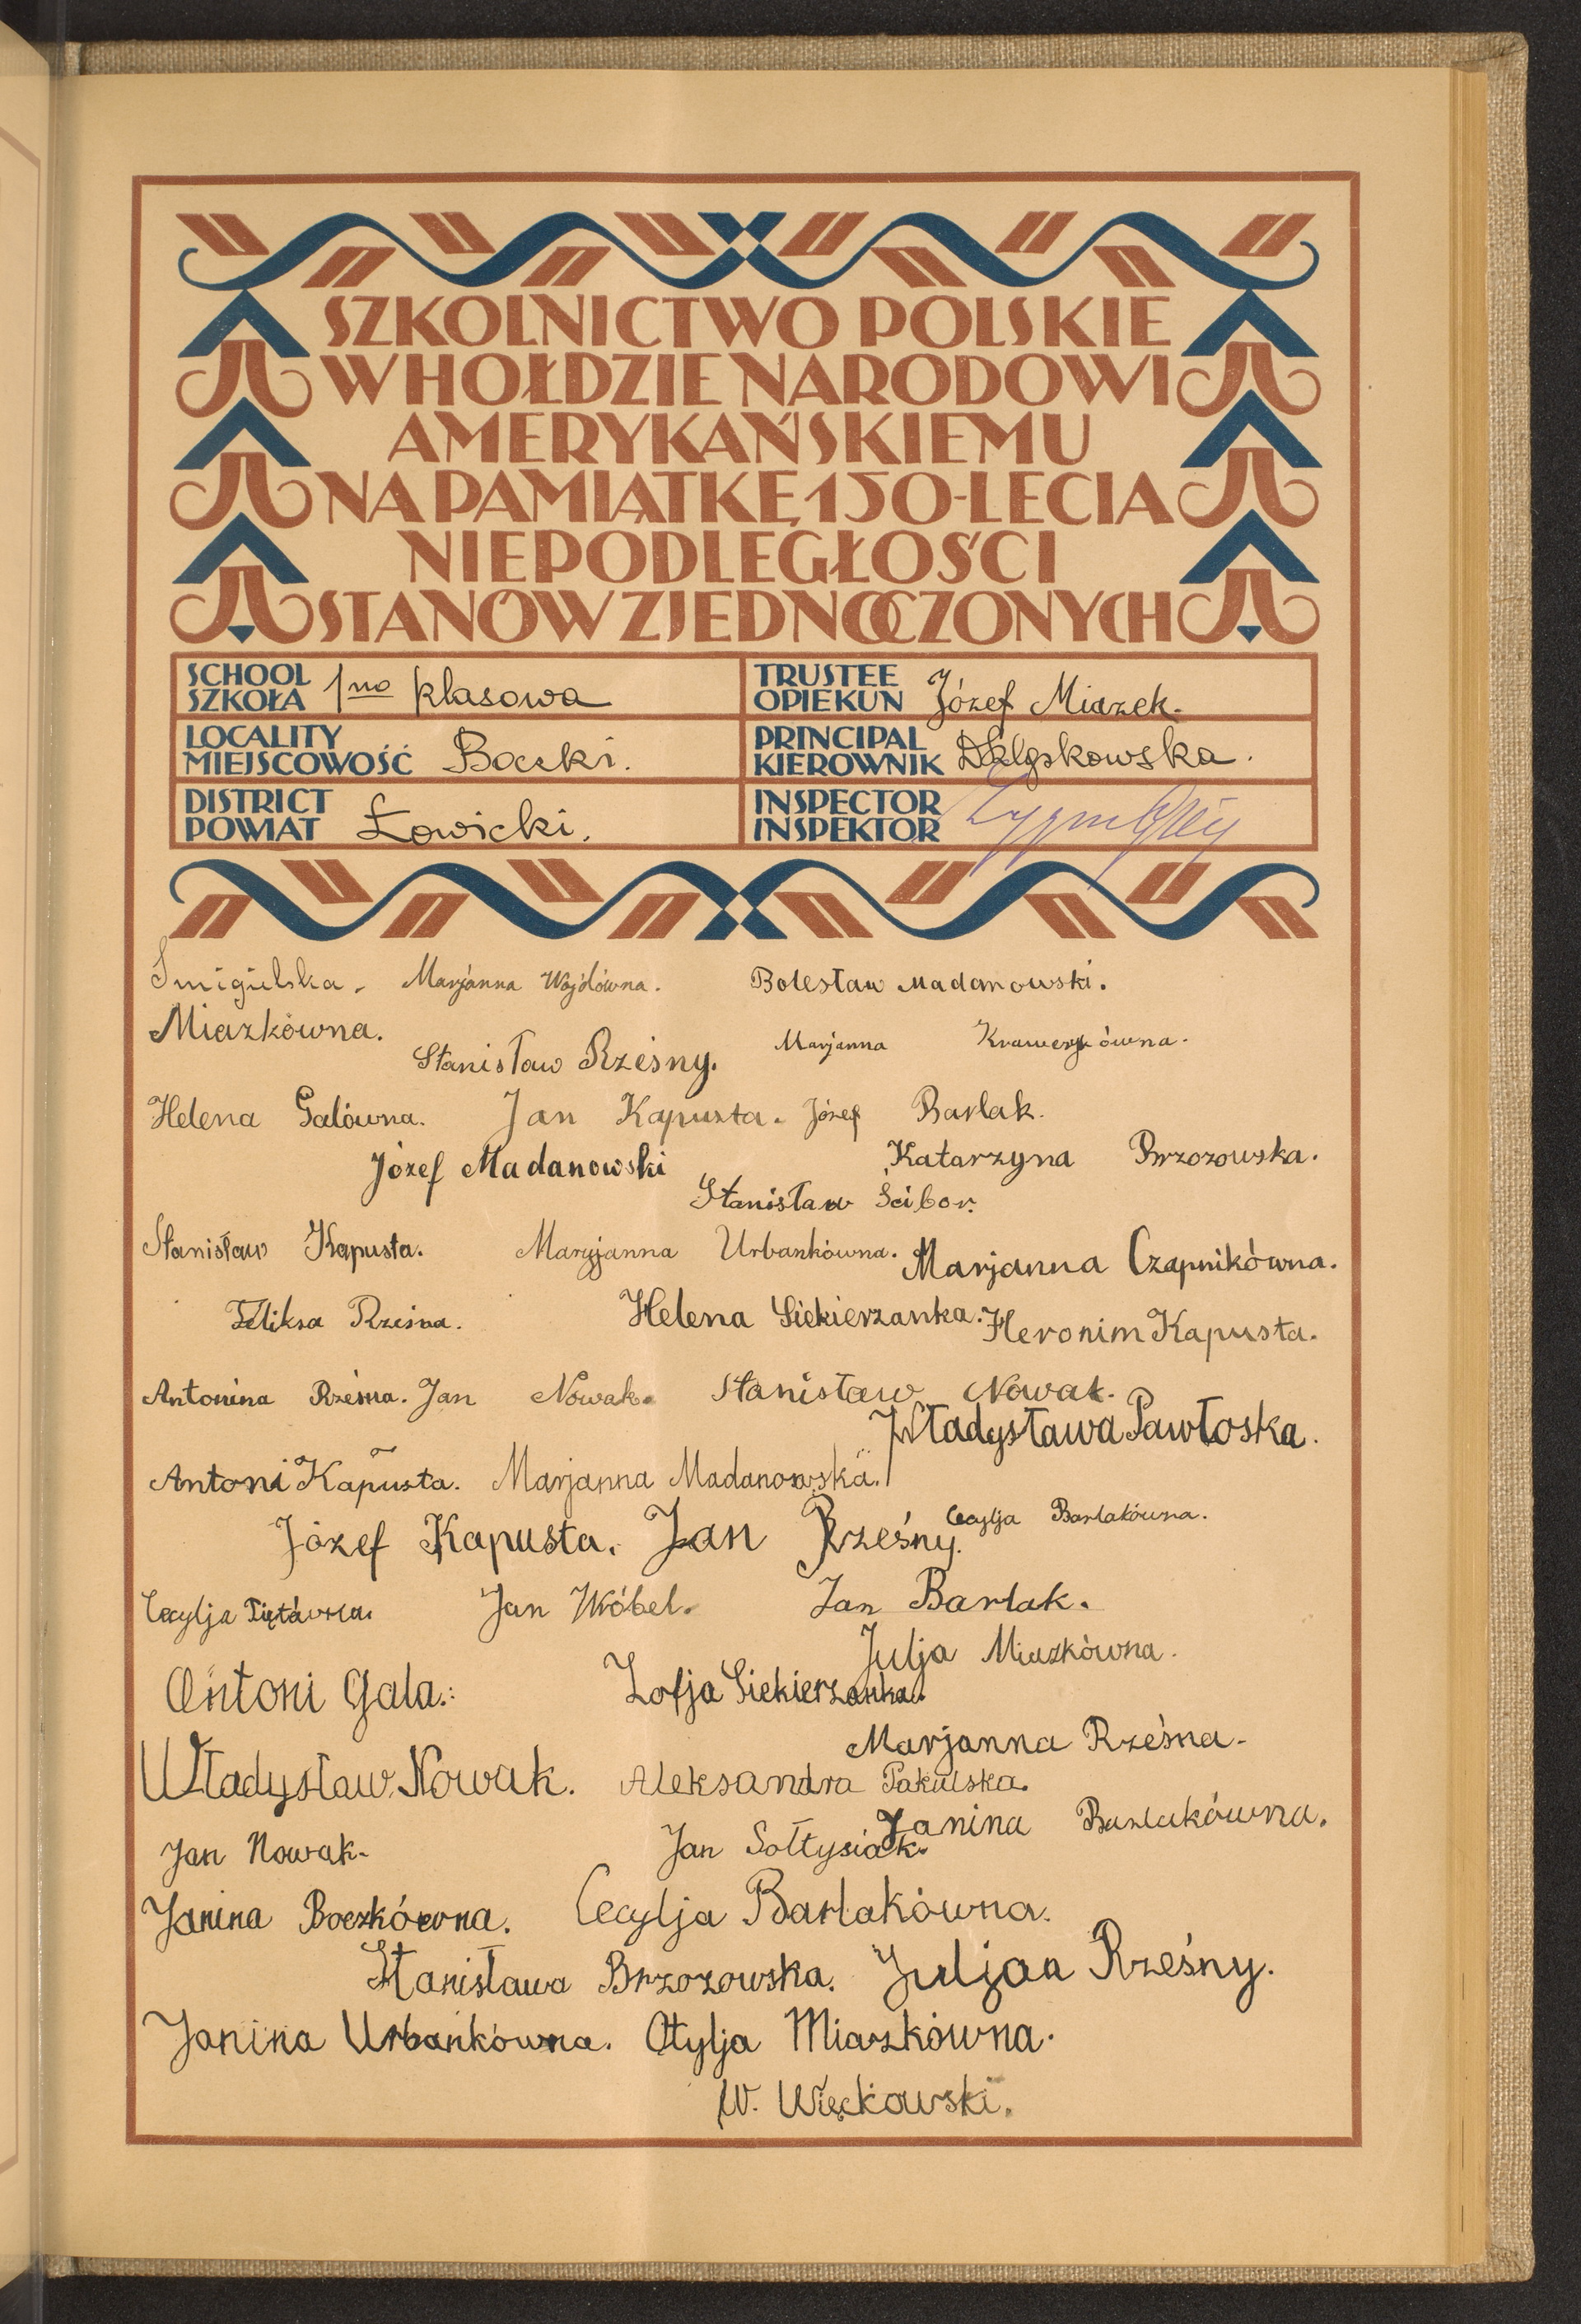 SZKOLNICTWO POLSKIE
W HOŁDZIE NARODOWI
AMERYKAŃSKIEMU
NA PAMIĄTKĘ 150-LECIA
NIEPODLEGŁOŚCI
STANÓW ZJEDNOCZONYCH
SCHOOL
SZKOŁA 1no klasowa
TRUSTEE
OPIEKUN Józef Miazek.
LOCALITY
MIEJSCOWOŚĆ Boczki.
PRINCIPAL
KIEROWNIK
DISTRICT
POWIAT Łowicki.
INSPECTOR
INSPEKTOR
Śmigielska. Marjanna Wojdówna. Bolesław Madanowski.
Miazkówna.
Stanisław Rześny. Marjanna Krawczykówna.
Helena Galówna. Jan Kapusta. Józef Barlak.
Józef Madanowski Katarzyna Brzozowska.
Stanisław Ścibor.
Stanisław Kapusta. Maryjanna Urbankówna. Marjanna Czapnikówna.
Feliksa Rześna. Helena Siekierzanka. Heronim Kapusta.
Antonina Rześna. Jan Nowak. Stanisław Nowak.
Władysława Pawłoska.
Antoni Kapusta. Marjanna Madanowska.
Józef Kapusta. Jan Rześny. Cecylja Barlakówna.
Cecylja Jan Wróbel. Jan Barlak.
Julja Miazkówna.
Antoni Gala. Zofja Siekierzanka.
Marjanna Rześna.
Władysław Nowak. Aleksandra Pakulska.
Janina Barlakówna.
Jan Nowak. Jan Sołtysiak.
Janina Boczkówna. Cecylja Barlakówna.
Stanisława Brzozowska. Juljan Rześny.
Janina Urbankówna. Otylja Miazkówna.
W. Więckowski.